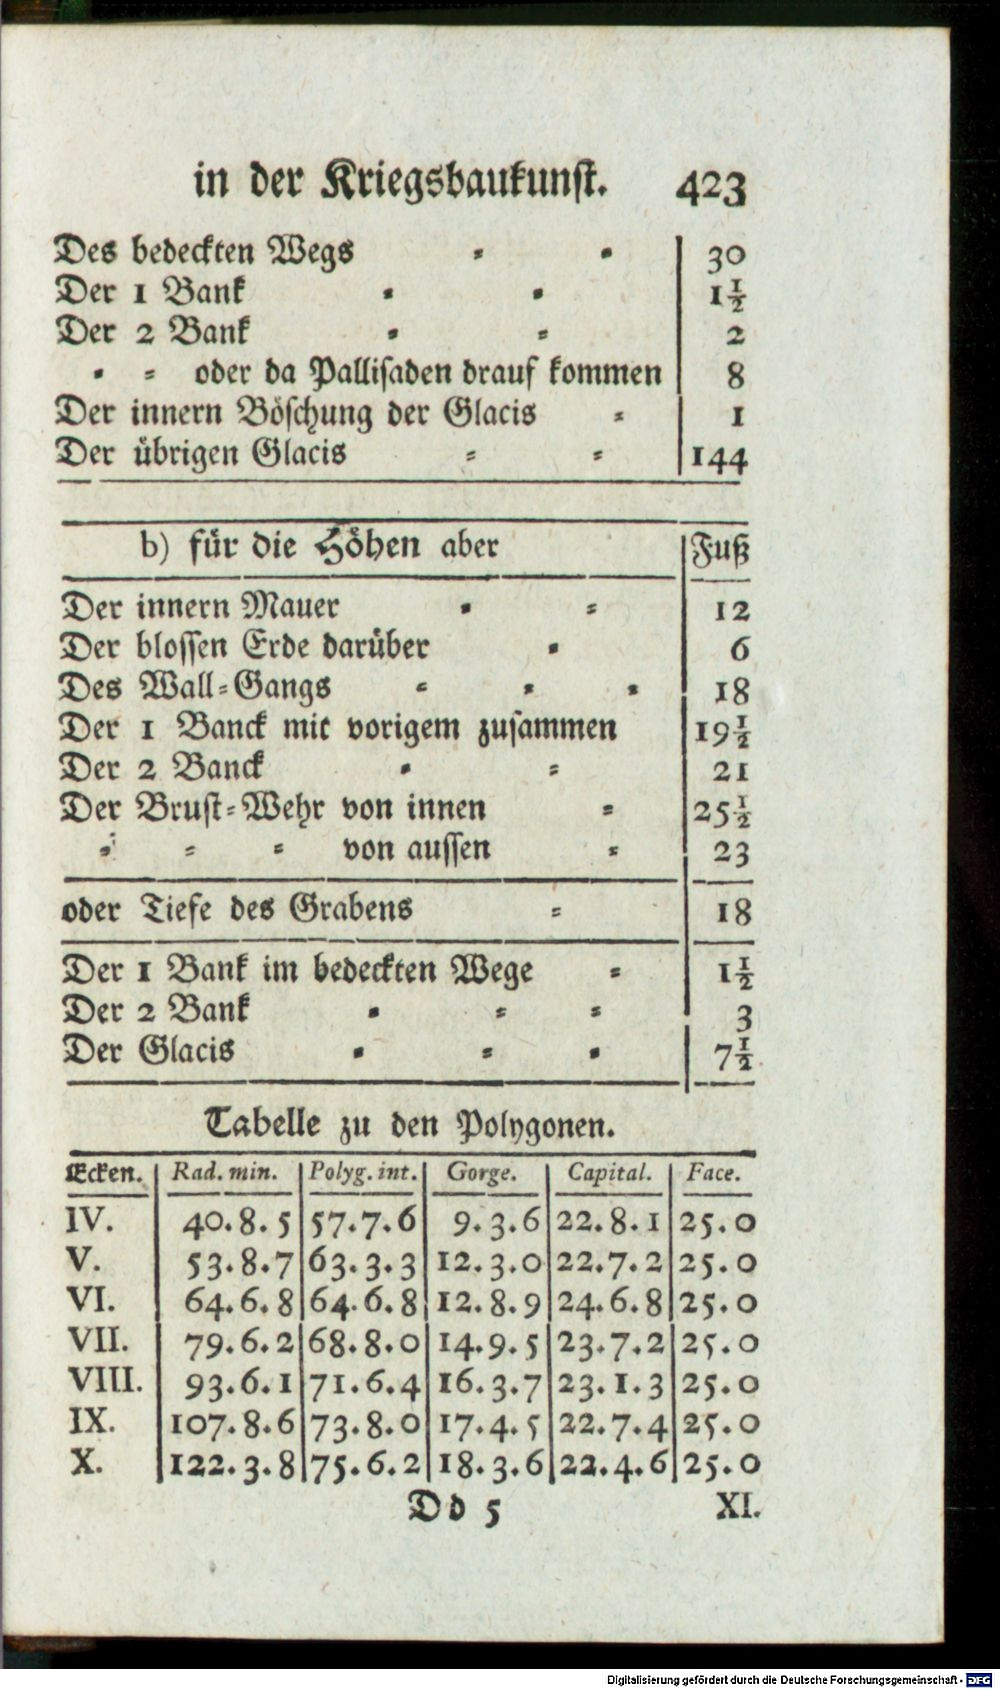 in der Kriegsbaukunst. 423
Des bedeckten Wegs = = 30
Der 1 Bank = = 1½
Der 2 Bank = = 2
= = oder da Pallisaden drauf kommen 8
Der innern Böschung der Glacis = 1
Der übrigen Glacis = = 144
b) für die Höhen aber Fuß
Der innern Mauer = = 12
Der blossen Erde darüber = 6
Des Wall=Gangs = = = 18
Der 1 Banck mit vorigem zusammen 19½
Der 2 Banck = = 21
Der Brust=Wehr von innen = 25½
= = = von aussen = 23
oder Tiefe des Grabens = 18
Der 1 Bank im bedeckten Wege = 1½
Der 2 Bank = = = 3
Der Glacis = = = 7½
Tabelle zu den Polygonen.
Ecken. Rad. min. Polyg. int. Gorge. Capital. Face.
IV. 40.8.5 57.7.6 9.3.6 22.8.1 25.0
V. 53.8.7 63.3.3 12.3.0 22.7.2 25.0
VI. 64.6.8 64.6.8 12.8.9 24.6.8 25.0
VII. 79.6.2 68.8.0 14.9.5 23.7.2 25.0
VIII. 93.6.1 71.6.4 16.3.7 23.1.3 25.0
IX. 107.8.6 73.8.0 17.4.5 22.7.4 25.0
X. 122.3.8 75.6.2 18.3.6 22.4.6 25.0
Dd 5 XI.
Digitalisierung gefördert durch die Deutsche Forschungsgemeinschaft - DFG